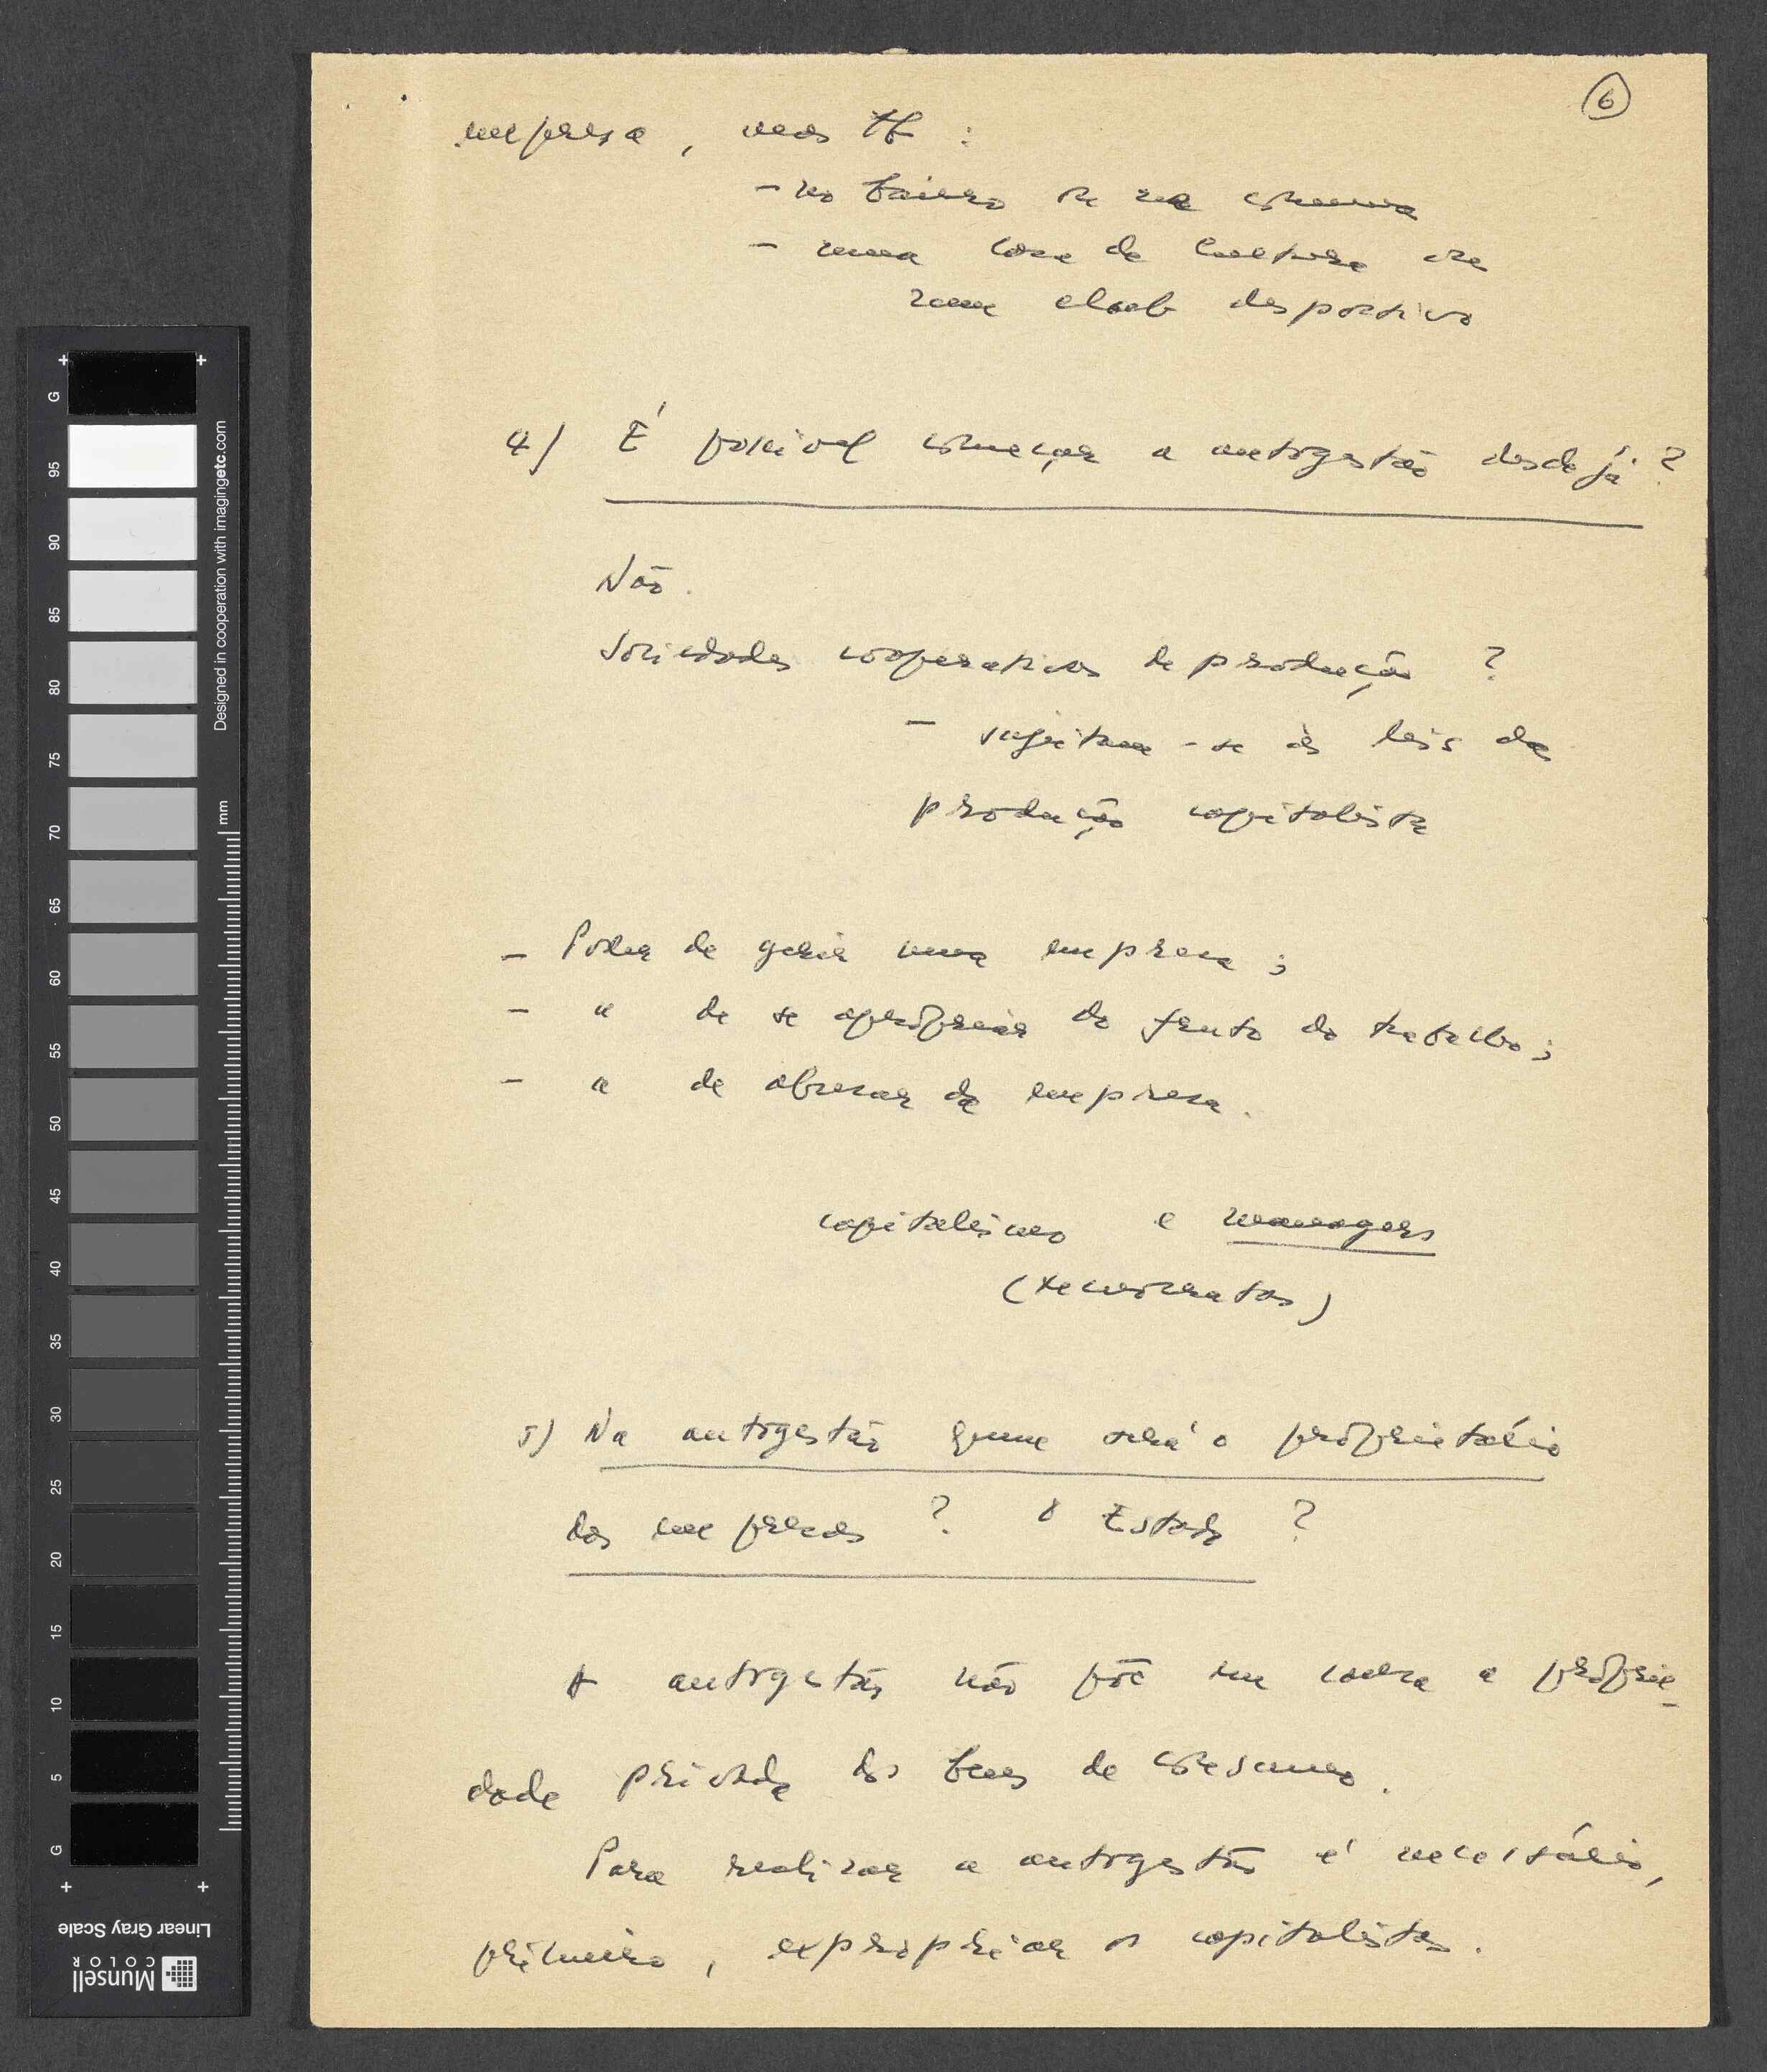 6
empresa, mas tb :
- no bairro ou na comuna
- numa casa de cultura ou
num club desportivo
4) É possível começar a autogestão desde já ?
Não.
Sociedades cooperativas de produção ?
- sujeitam-se às leis da
produção capitalista
- Poder de gerir uma empresa ;
- " de se apropriar do fruto do trabalho ;
- " de abusar da empresa.
capitalismo e managers
(tecnocratas)
5) Na autogestão quem será o proprietário
das empresas ? O Estado ?
A autogestão não põe em causa a proprie-
dade privada dos bens de consumo.
Para realizar a autogestão é necessário,
primeiro, expropriar os capitalistas.
G
95
90
85
80
75
70
65
60
55
50
45
40
35
30
25
20
15
10
5
G
Designed in cooperation with imagingetc.com
mm
Linear Gray Scale
Munsell
COLOR